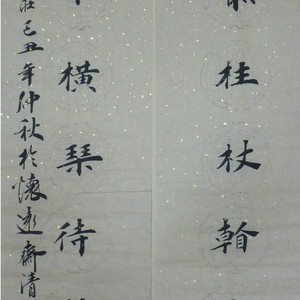 柱杖
橫琴待
己丑年仲秋於懷遠齋清